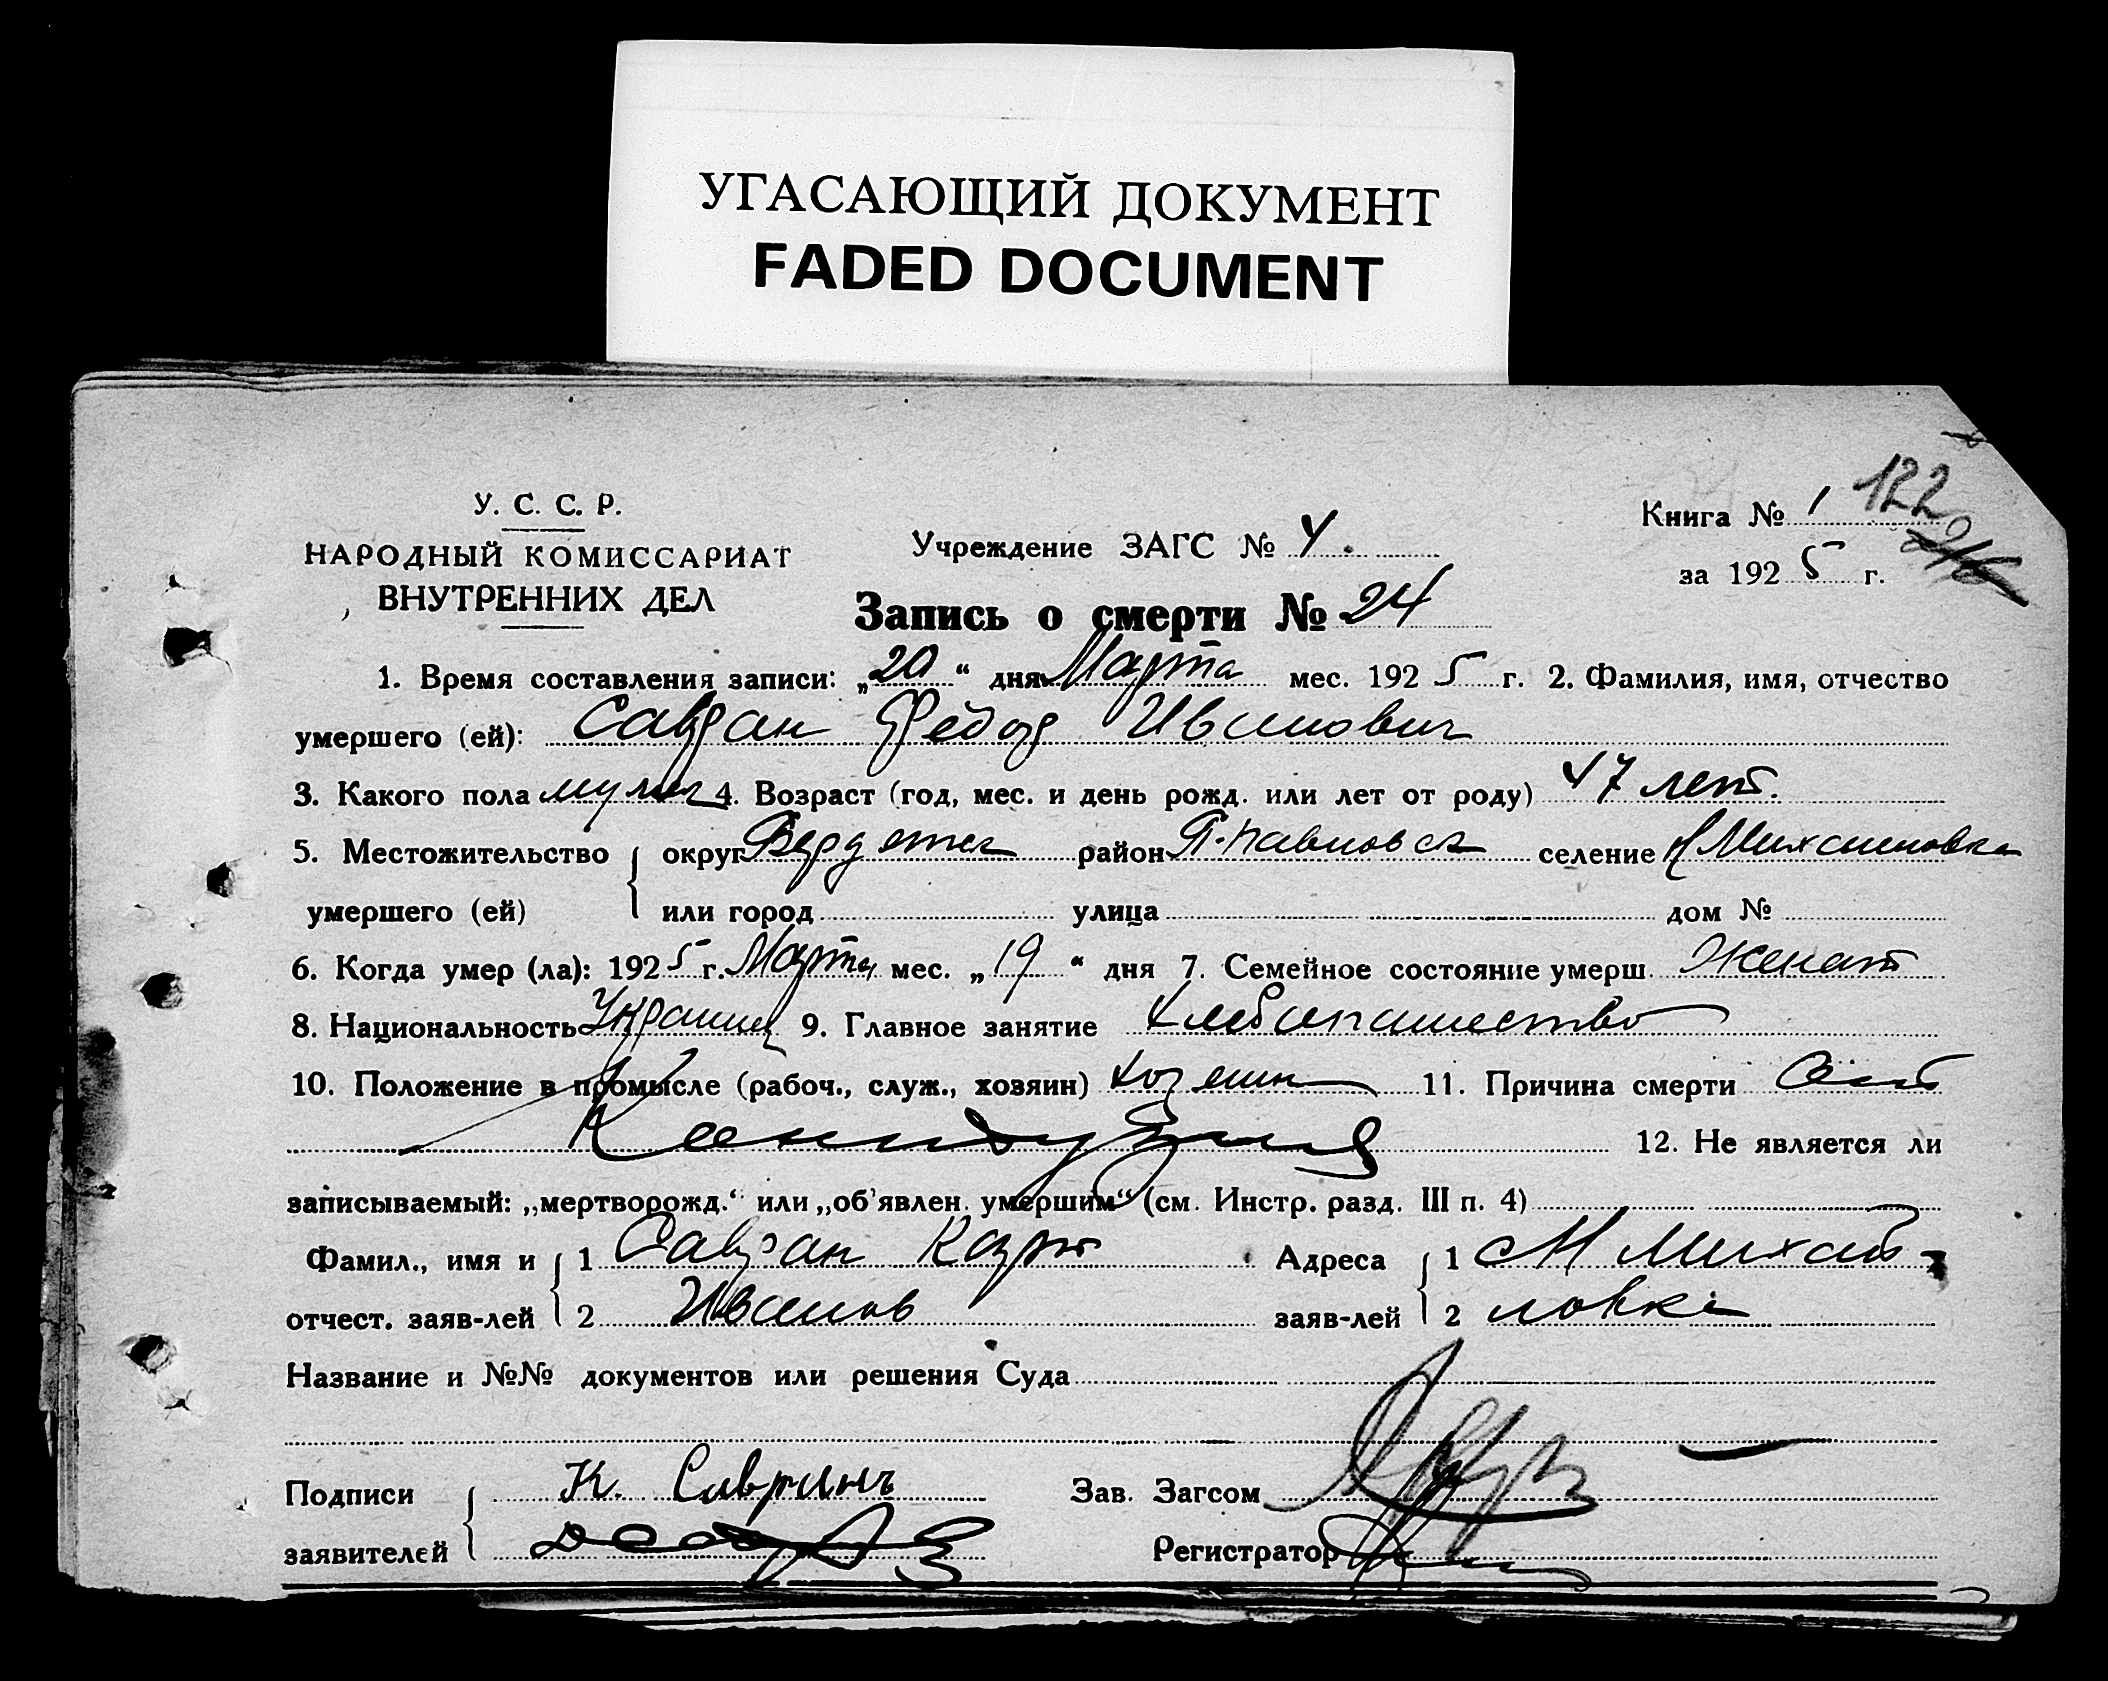 УГАСАЮЩИЙ ДОКУМЕНТ
FADED DOCUMENT
У. С. С. Р.
НАРОДНЫЙ КОМИССАРИАТ
ВНУТРЕННИХ ДЕЛ
Учреждение ЗАГС № 4.
Книга № 1 122
за 1925 г.
Запись о смерти № 24
1. Время составления записи: „20“ дня Марта мес. 1925 г. 2. Фамилия, имя, отчество
умершего (ей): Савран Федор Иванович
3. Какого пола муж 4. Возраст (год, мес. и день рожд. или лет от роду) 47 лет.
5. Местожительство округ район П. павловск селение Михайловка
умершего (ей) или город улица дом №
6. Когда умер (ла): 1925 г. Марта мес. „19“ дня 7. Семейное состояние умерш Женат
8. Национальность Украинец 9. Главное занятие Хлебопашество
10. Положение в промысле (рабоч., служ., хозяин) хозяин 11. Причина смерти
12. Не является ли
записываемый: „мертворожд.“ или „об'явлен. умершим“ (см. Инстр. разд. III п. 4)
Фамил., имя и 1 Савран Карп Адреса 1 Михай
отчест. заяв-лей 2 Иванов заяв-лей 2 ловка
Название и №№ документов или решения Суда
Подписи К. Савранъ Зав. Загсом
заявителей Регистратор